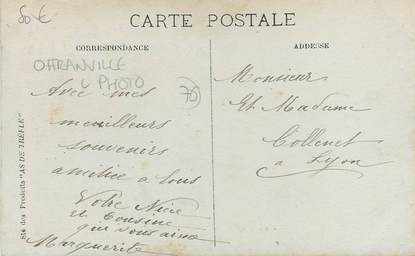 80 €
CARTE POSTALE
CORRESPONDANCE
ADRESSE
OFFRANVILLE
PHOTO
76
Avec mes
meilleurs
souvenirs
amitiée a tous
Votre Nièce
et Cousine
qui vous aime
Marguerite
Monsieur
Et Madame
Collenet
a Lyon
Sté des Produits "AS DE TRÈFLE"